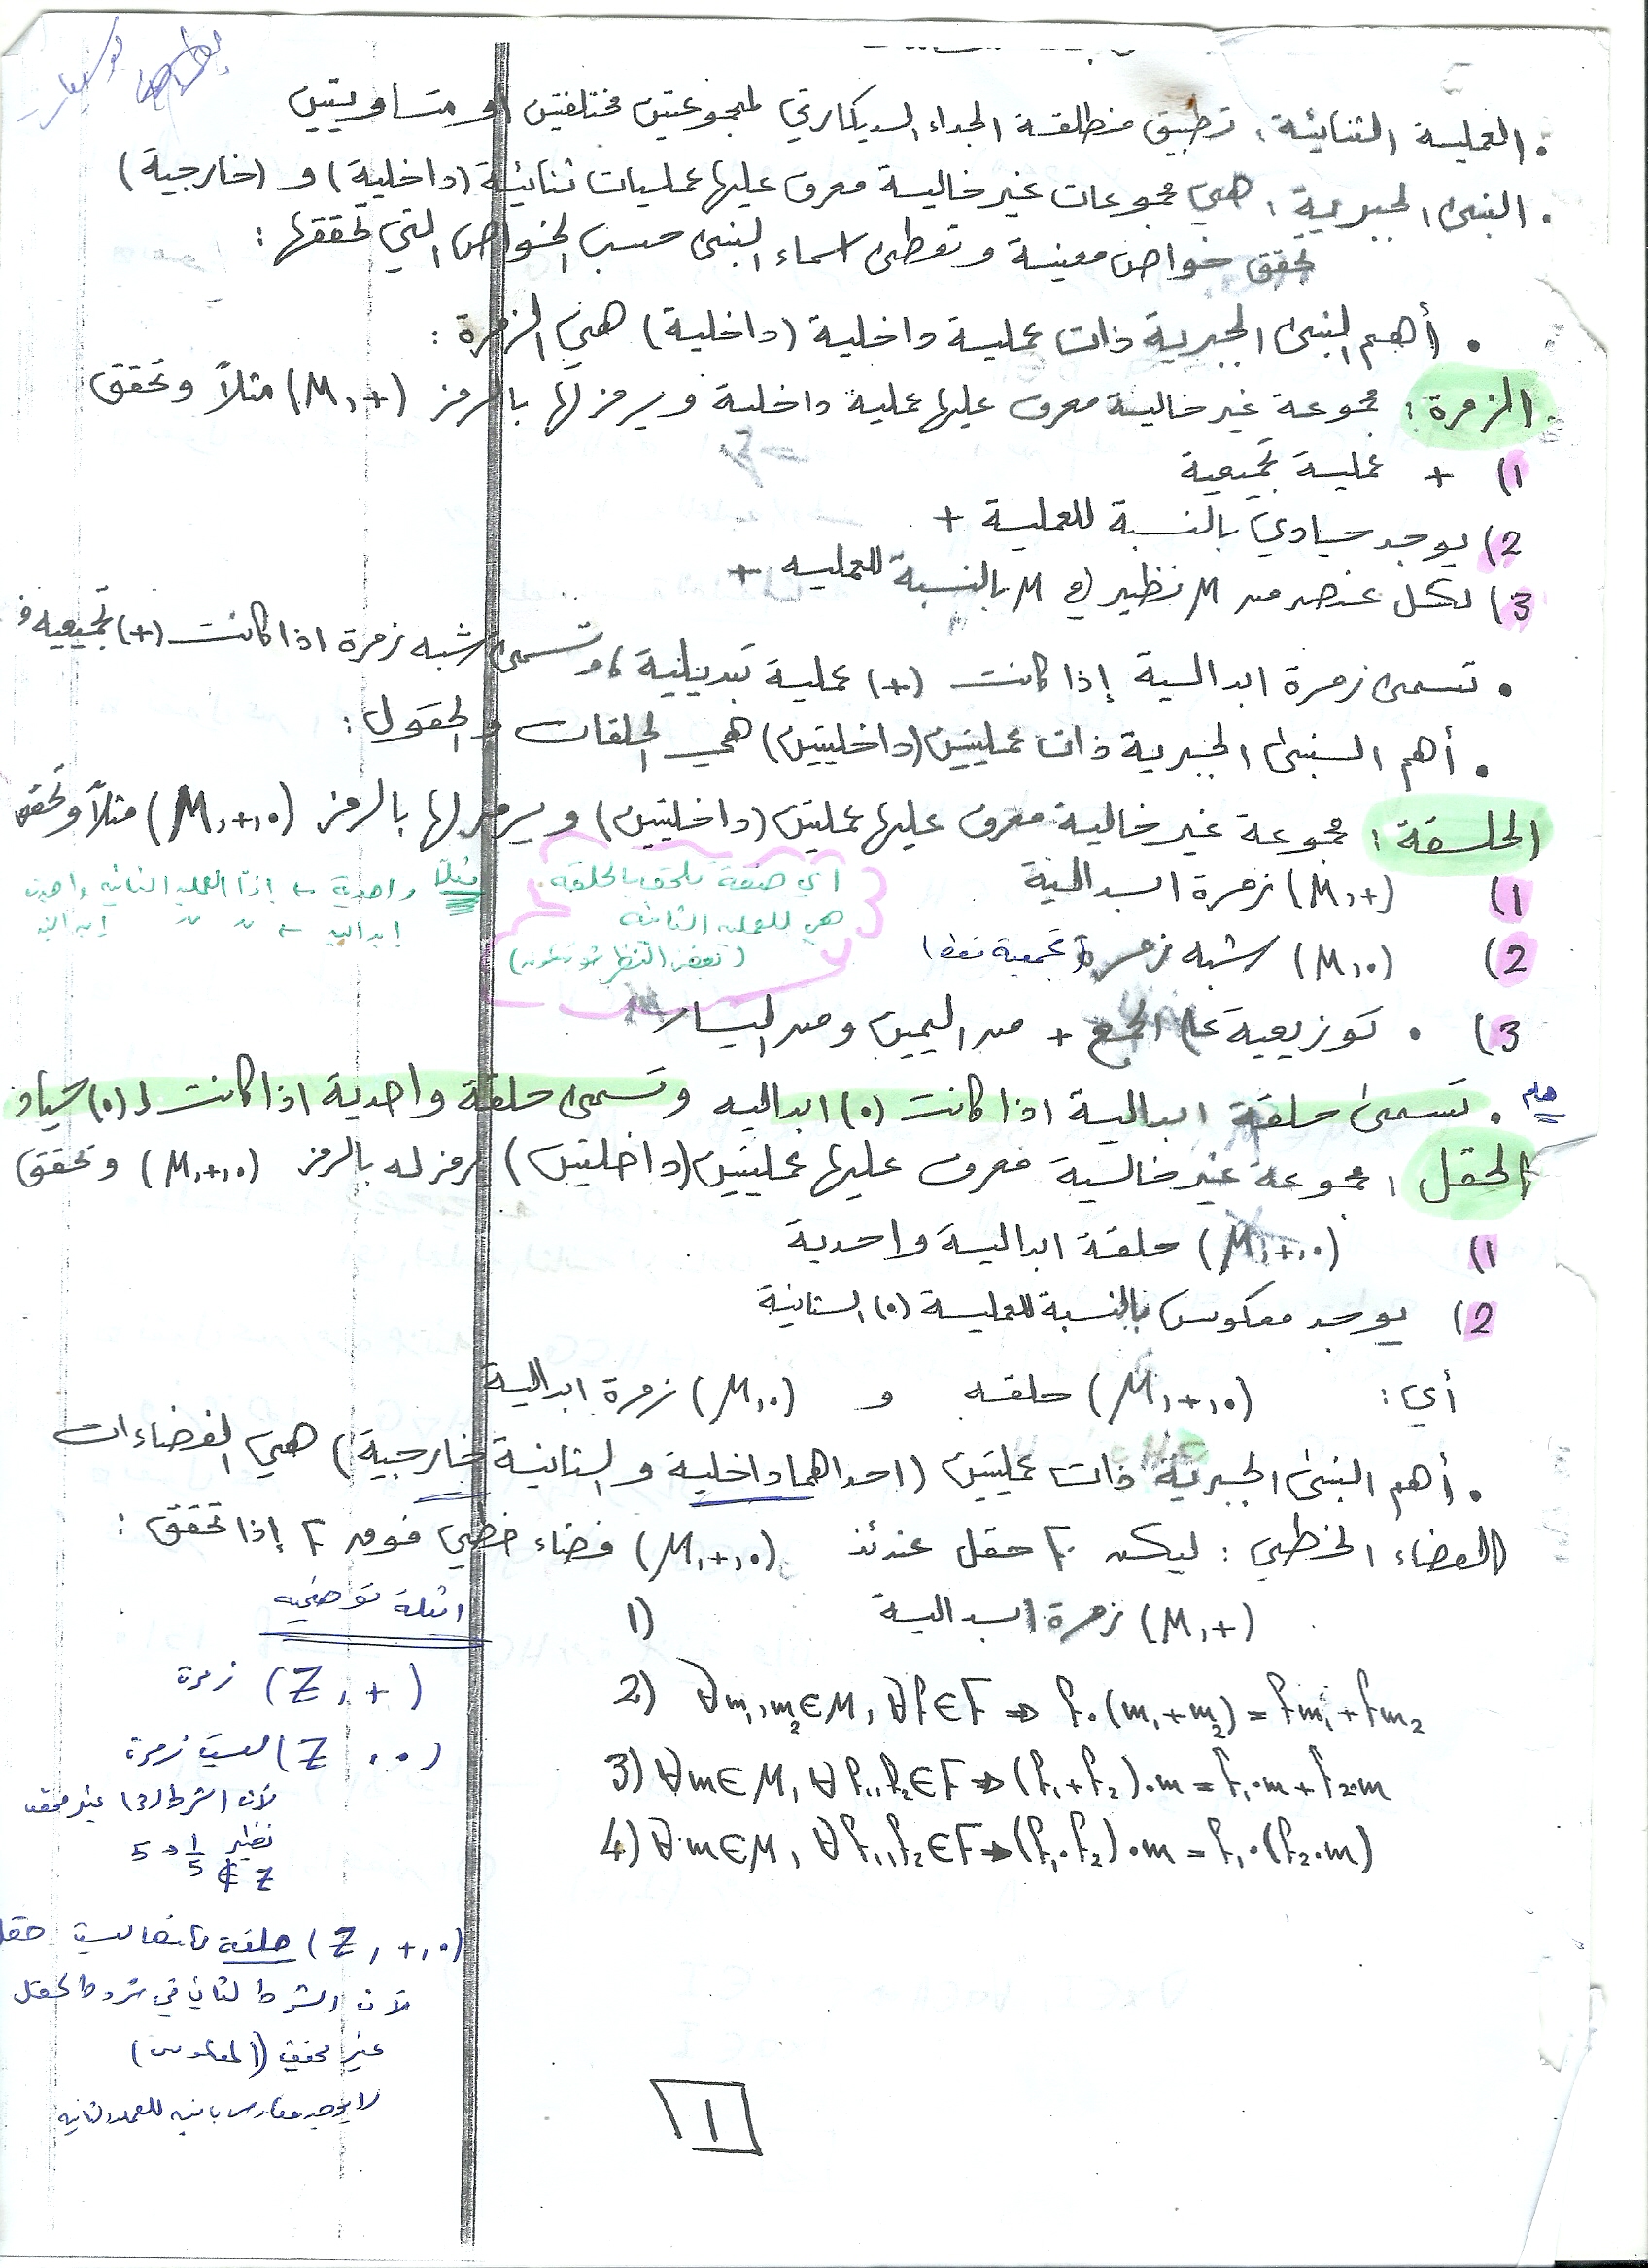 • العملية الثنائية: تطبيق منطلقه الجداء الديكارتي لمجموعتين مختلفتين أو متساويتين
• البنى الجبرية: هي مجموعات غير خالية معرف عليها عمليات ثنائية (داخلية) و (خارجية)
تحقق خواص معينة وتعطى أسماء البنى حسب الخواص التي تحققها:
• أهم البنى الجبرية ذات عملية داخلية (داخلية) هي الزمرة:
الزمرة: مجموعة غير خالية معرف عليها عملية داخلية ويرمز لها بالرمز (M,+) مثلاً وتحقق
1) + عملية تجميعية
2) يوجد حيادي بالنسبة للعملية +
3) لكل عنصر من M نظير في M بالنسبة للعملية +
• تسمى زمرة ابدالية إذا كانت (+) عملية تبديلية، وتسمى شبه زمرة اذا كانت (+) تجميعية
• أهم البنى الجبرية ذات عمليتين (داخليتين) هي الحلقات والحقول:
الحلقة: مجموعة غير خالية معرف عليها عمليتين (داخليتين) ويرمز لها بالرمز (M,+,•) مثلاً وتحقق
1) (M,+) زمرة ابدالية
أي صفة تلحق بالحلقة
هي للعملية الثانية
(بغض النظر
مثلاً واحدية ← إذا العملية الثانية واحدية
إبدالية ← 〃 〃 إبدالية
2) (M,•) شبه زمرة (تجميعية فقط)
3) • توزيعية على الجمع + من اليمين ومن اليسار
هام • تسمى حلقة ابدالية اذا كانت (•) ابدالية وتسمى حلقة واحدية اذا كانت لـ (•) حياد
الحقل: مجموعة غير خالية معرف عليها عمليتين (داخليتين) يرمز له بالرمز (M,+,•) وتحقق
1) (M,+,•) حلقة ابدالية واحدية
2) يوجد معكوس بالنسبة للعملية (•) الثانية
أي: (M,+,•) حلقه و (M,•) زمرة ابدالية
• أهم البنى الجبرية ذات عمليتين (احداهما داخلية والثانية خارجية) هي الفضاءات
الفضاء الخطي: ليكن F حقل عندئذ (M,+,•) فضاء خطي فوق F إذا تحقق:
1) (M,+) زمرة ابدالية
2) ∀m₁,m₂∈M, ∀f∈F ⇒ f•(m₁+m₂) = fm₁+fm₂
3) ∀m∈M, ∀f₁,f₂∈F ⇒ (f₁+f₂)•m = f₁•m+f₂•m
4) ∀m∈M, ∀f₁,f₂∈F ⇒ (f₁•f₂)•m = f₁•(f₂•m)
امثلة توضيحية
(Z,+) زمرة
(Z,•) ليست زمرة
لأن الشرط (3) غير محقق
نظير 5 → 1/5
∉ Z
(Z,+,•) حلقة لكنها ليست حقل
لأن الشرط الثاني في شروط الحقل
غير محقق (المعكوس)
لا يوجد معكوس بالنسبة للعملية الثانية
1